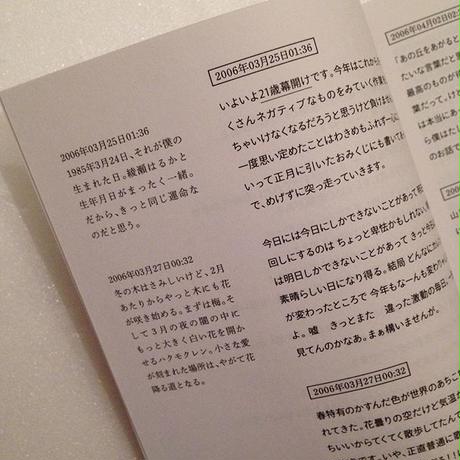 2006年03月25日01:36
1985年3月24日、それが僕の
生まれた日。綾瀬はるかと
生年月日がまったく一緒。
だから、きっと同じ運命な
のだと思う。
2006年03月27日00:32
冬の木はさみしいけど、2月
あたりからやっと木にも花
が咲き始める。まずは梅。そ
して3月の夜の闇の中に
もっと大きく白い花を開か
せるハクモクレン。小さな愛
が刻まれた場所は、やがて花
降る道となる。
2006年03月25日01:36
いよいよ21歳幕開けです。今年はこれから
くさんネガティブなものをみていく作業
ちゃいけなくなるだろうと思うけど負けませ
一度思い定めたことはわきめもふれず一
いって正月に引いたおみくじにも書いてあ
で、めげずに突っ走っていきます。
今日には今日にしかできないことがあって
回しにするのは ちょっと卑怯かもしれない
は明日しかできないことがあって きっと今日
素晴らしい日になり得る。結局 どんなにか
が変わったところで 今年もなーんも変わ
よ。嘘 きっとまた 違った激動の毎日
見てんのかなあ。まぁ構いませんが。
2006年03月27日00:32
春特有のかすんだ色が世界のあちこ
れてきた。花曇りの空だけど気温が
ちいいからてくてく散歩してたんで
2006年04月02日02:
「あの丘をあがると
たいな言葉だと
最高のものが
葉だって。けど
は本当にあっ
ら僕はたし
のお話で
2006年